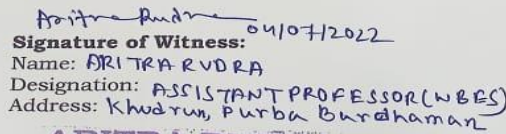 Aritra Rudra 04/07/2022
Signature of Witness:
Name: ARITRA RUDRA
Designation: ASSISTANT PROFESSOR (WBES)
Address: Khudrun, Purba Bardhaman